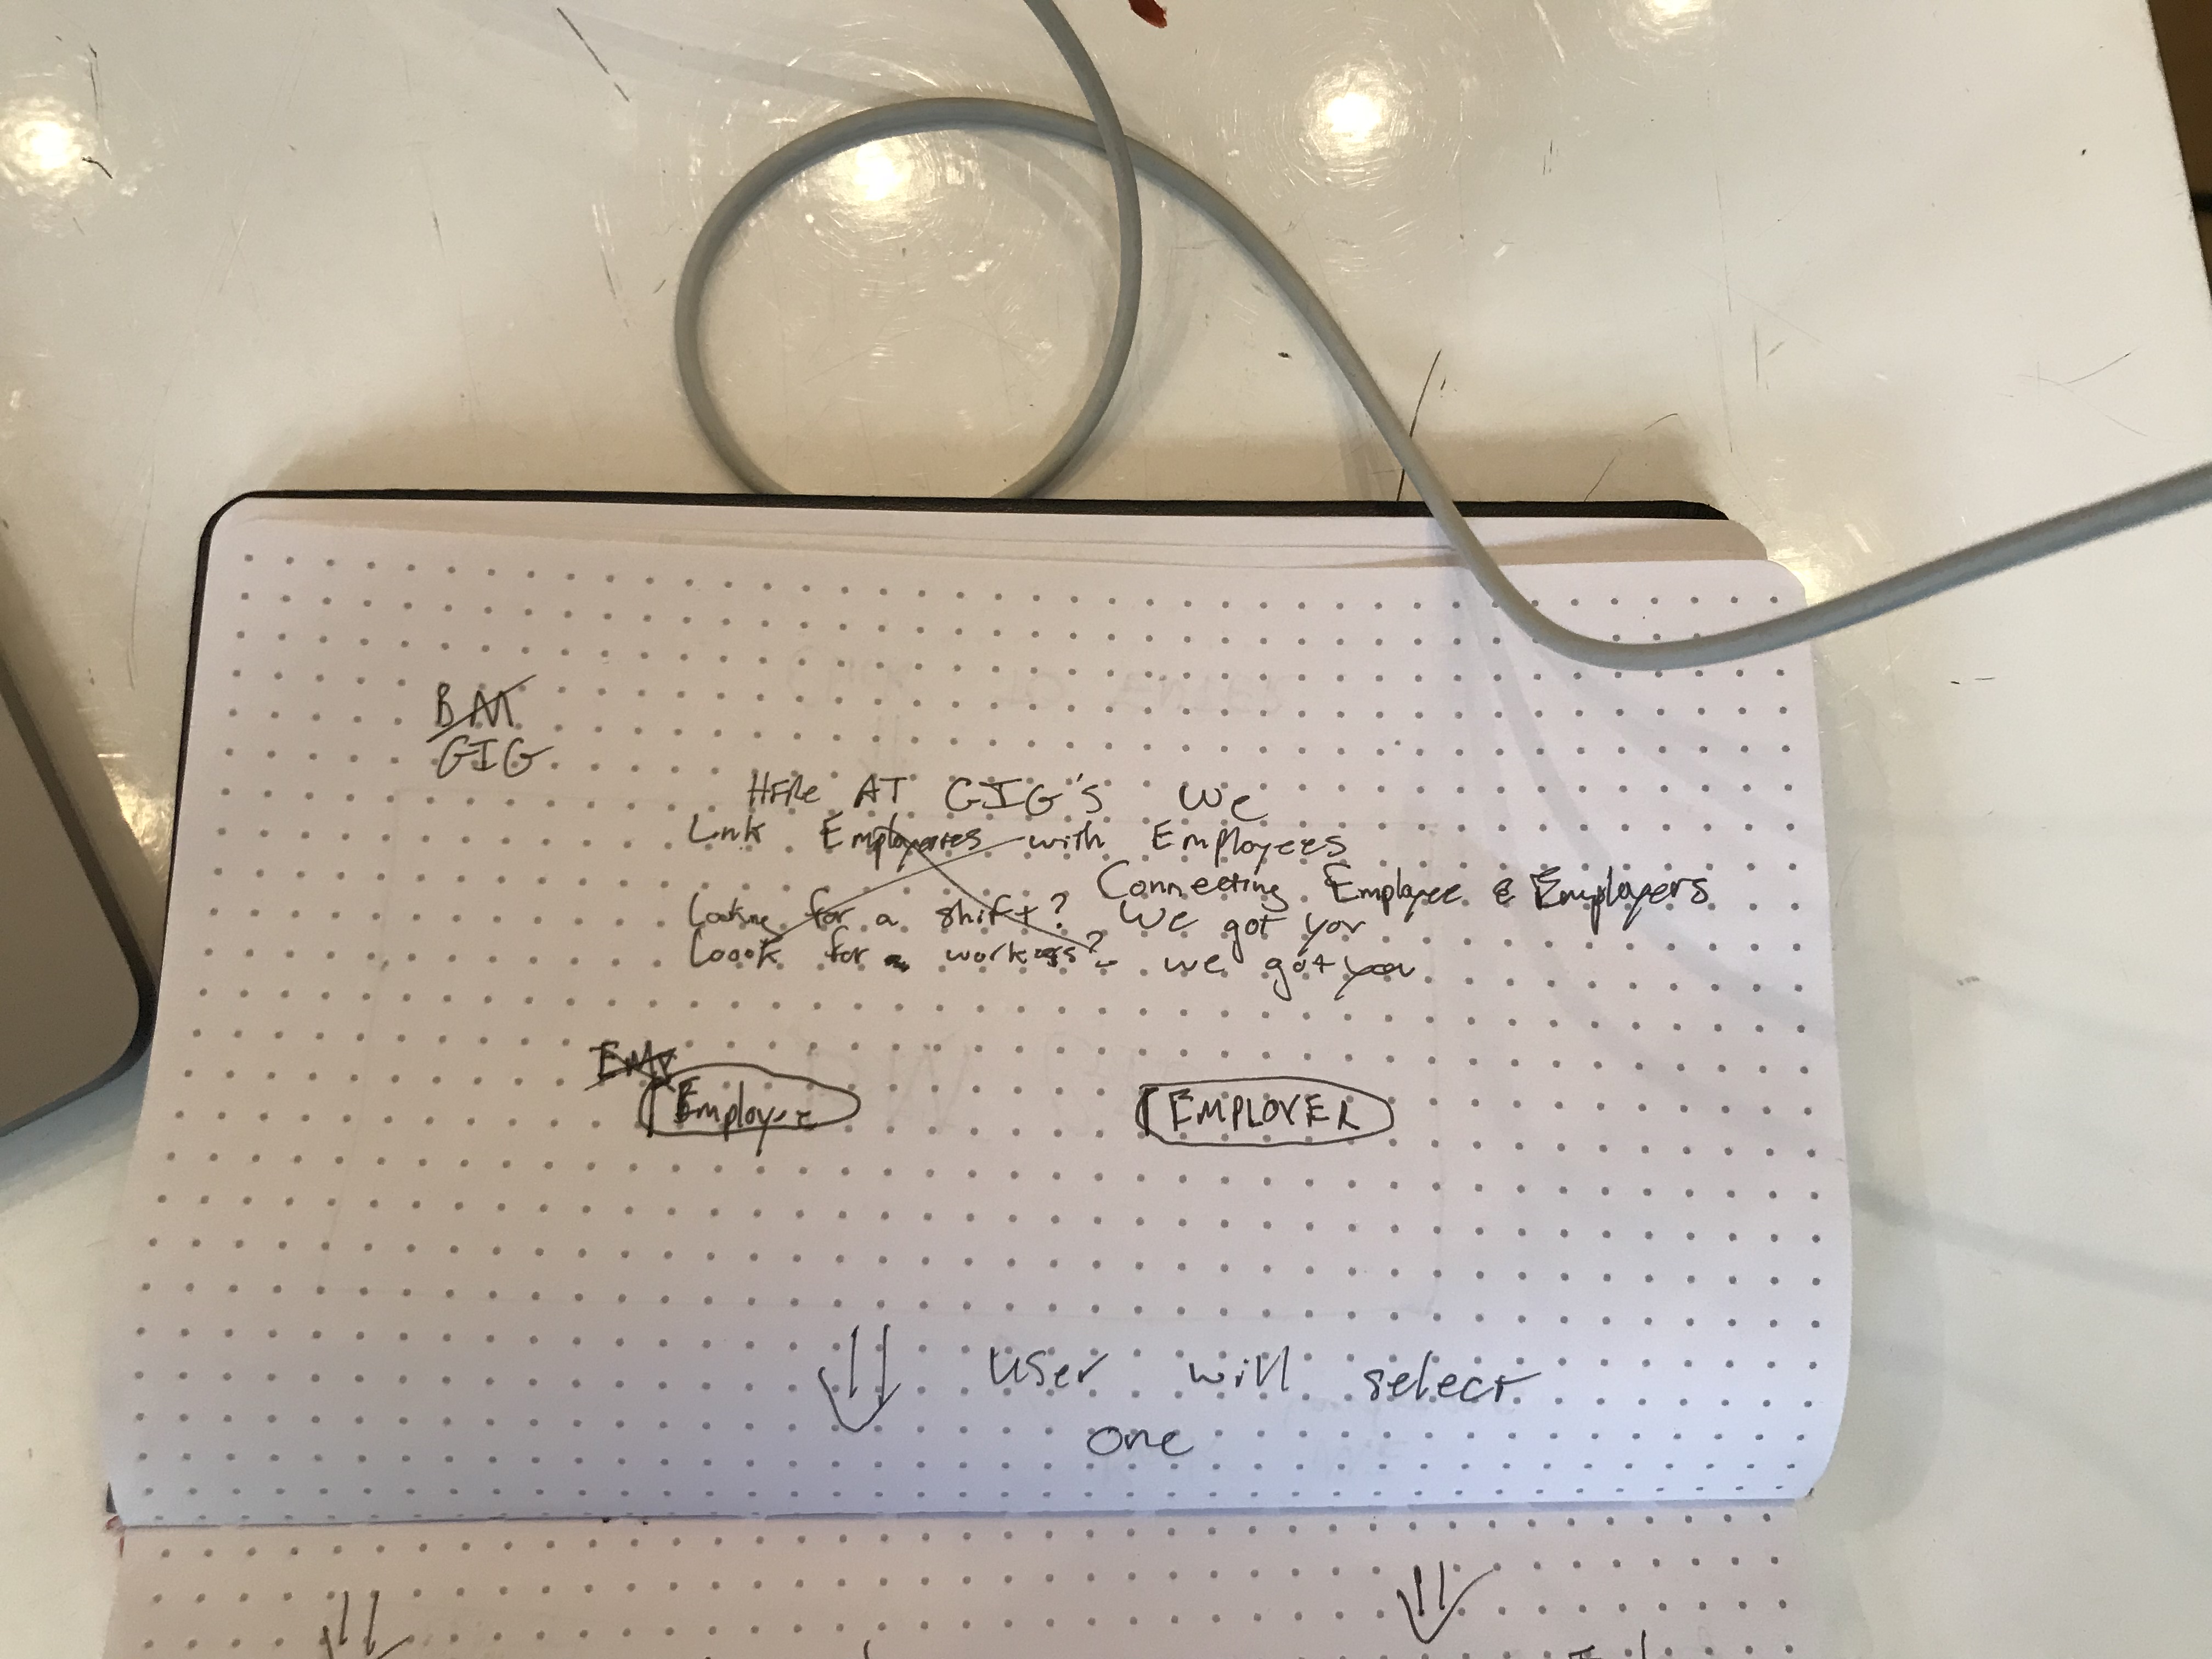 BM
GIG
HERE AT GIG'S WE
Link Employees with Employers
Connecting Employee & Employers
Looking for a shift? We got you
Look for a workers? - we got you
Emp
Employee
EMPLOYER
User will select
one